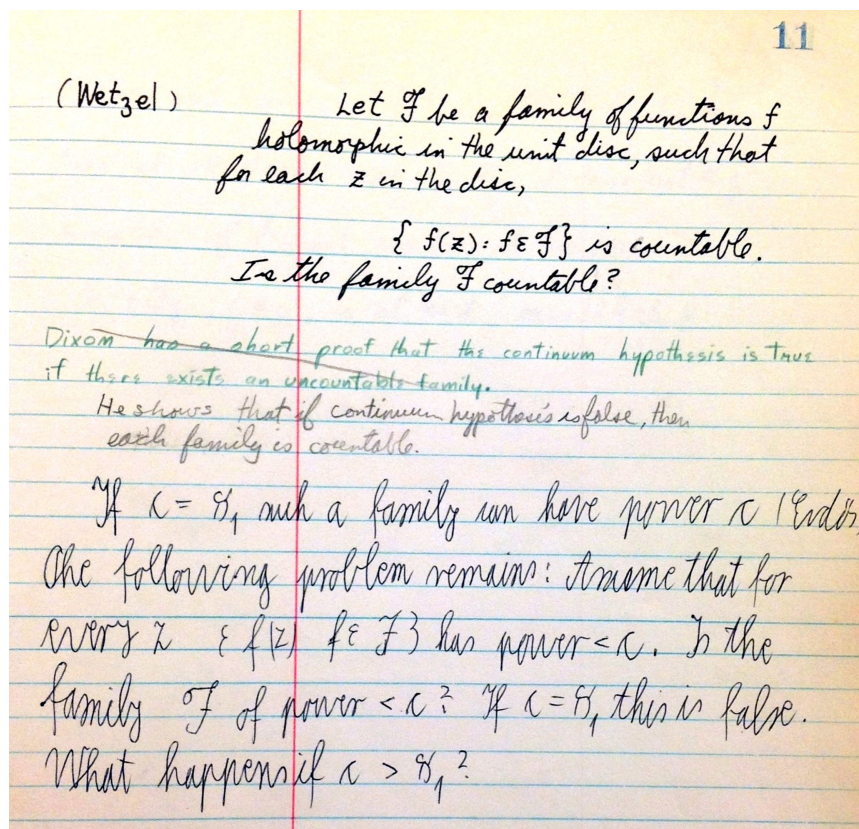 11
(Wetzel) Let ℱ be a family of functions f
holomorphic in the unit disc, such that
for each z in the disc,
{ f(z) : f ε ℱ } is countable.
Is the family ℱ countable?
Dixon has a short proof that the continuum hypothesis is true
if there exists an uncountable family.
He shows that if continuum hypothosis is false, then
each family is countable.
If c = ℵ₁ such a family can have power c (Erdös,
The following problem remains: Assume that for
every z { f(z) f ε ℱ } has power < c. Is the
family ℱ of power < c? If c = ℵ₁ this is false.
What happens if c > ℵ₁?